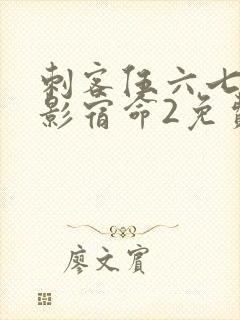 刺客伍六七
影宿命2免费
廖文宾